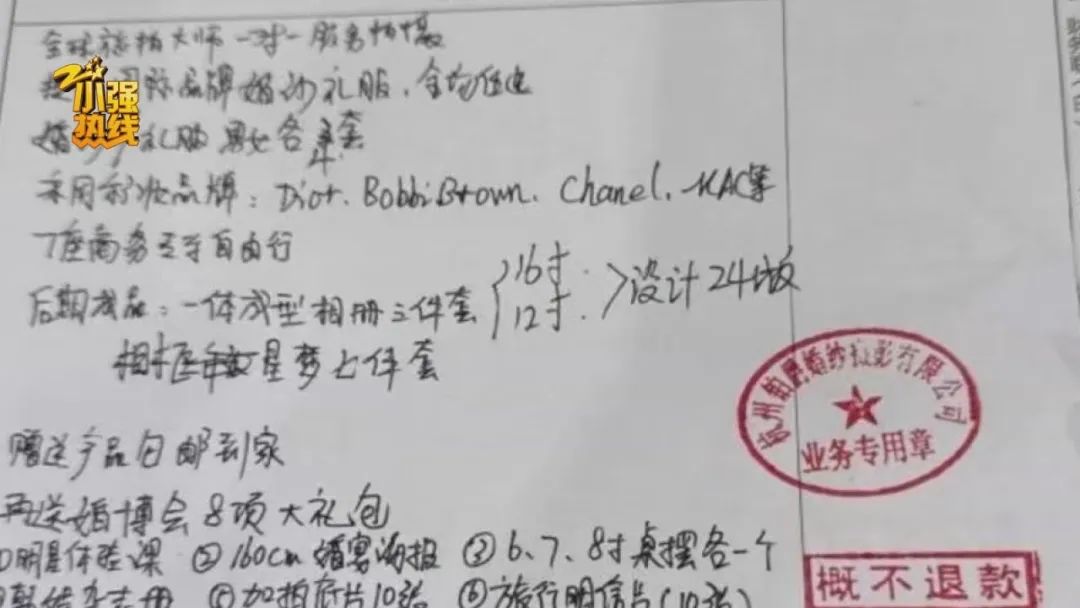 全球旅拍大师一对一服务拍摄
品牌婚纱礼服,全场任选
礼服男女各 套
采用彩妆品牌:Dior、BobbiBrown、Chanel、MAC等
7座商务 自由行
后期成品:一体成型相册三件套 16寸 12寸 设计24版
相框 星梦七件套
小强热线
杭州铂爵婚纱摄影有限公司
业务专用章
赠送产品包邮到家
再送婚博会8项大礼包
明星体验课 ②160cm婚宴海报 ③6、7、8寸桌摆各一个
⑤加拍底片10张 ⑥旅行明信片(10张)
概不退款